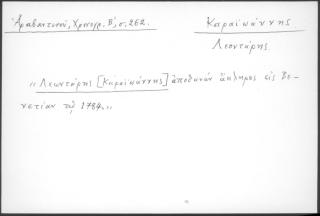 Ἀραβαντινοῦ, Χρονογρ. Β', σ. 262.
Καραϊωάννης
Λεοντάρης.
"Λεωντάρης [Καραϊωάννης] ἀποθανὼν ἄκληρος εἰς Βε-
νετίαν τῷ 1784."